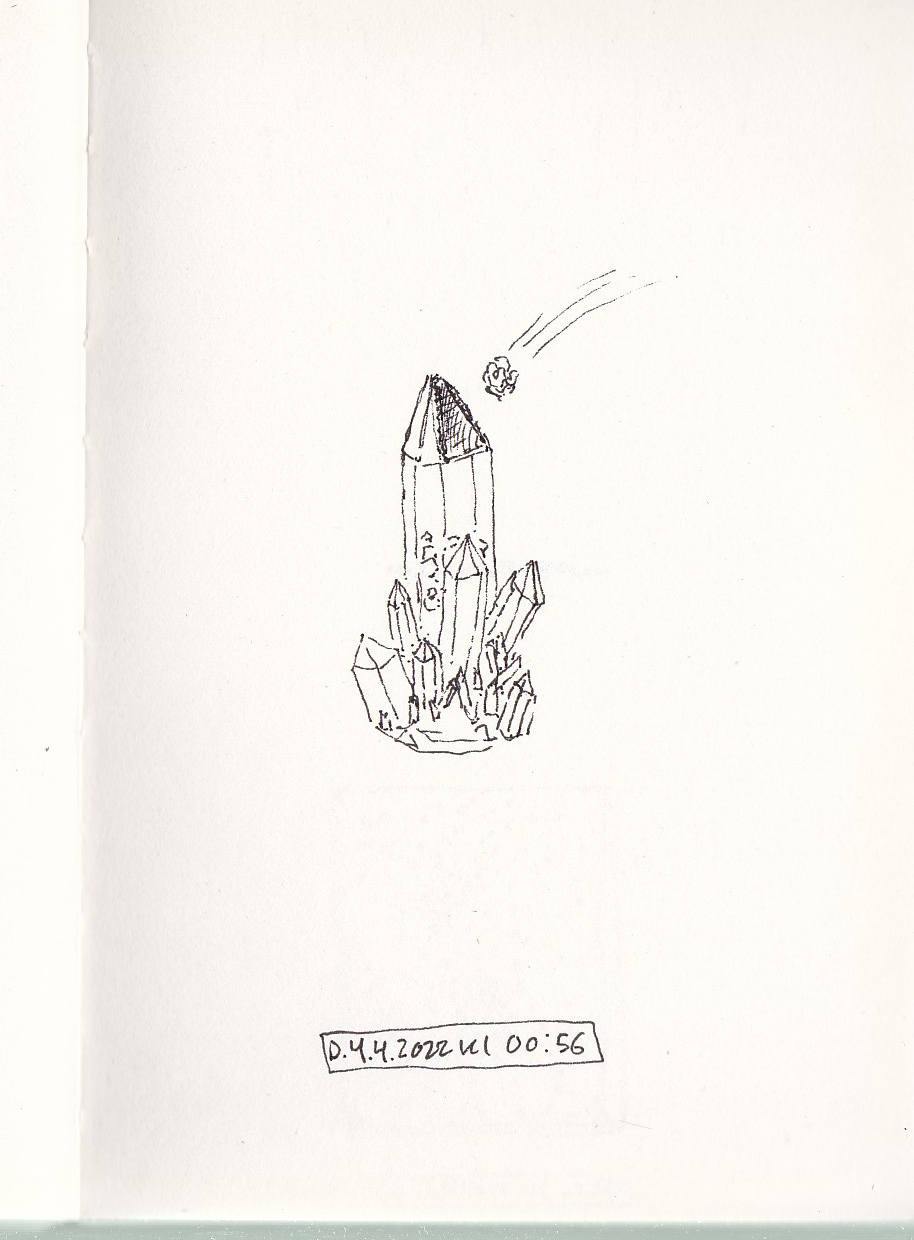 D.4.4.2022 kl 00:56